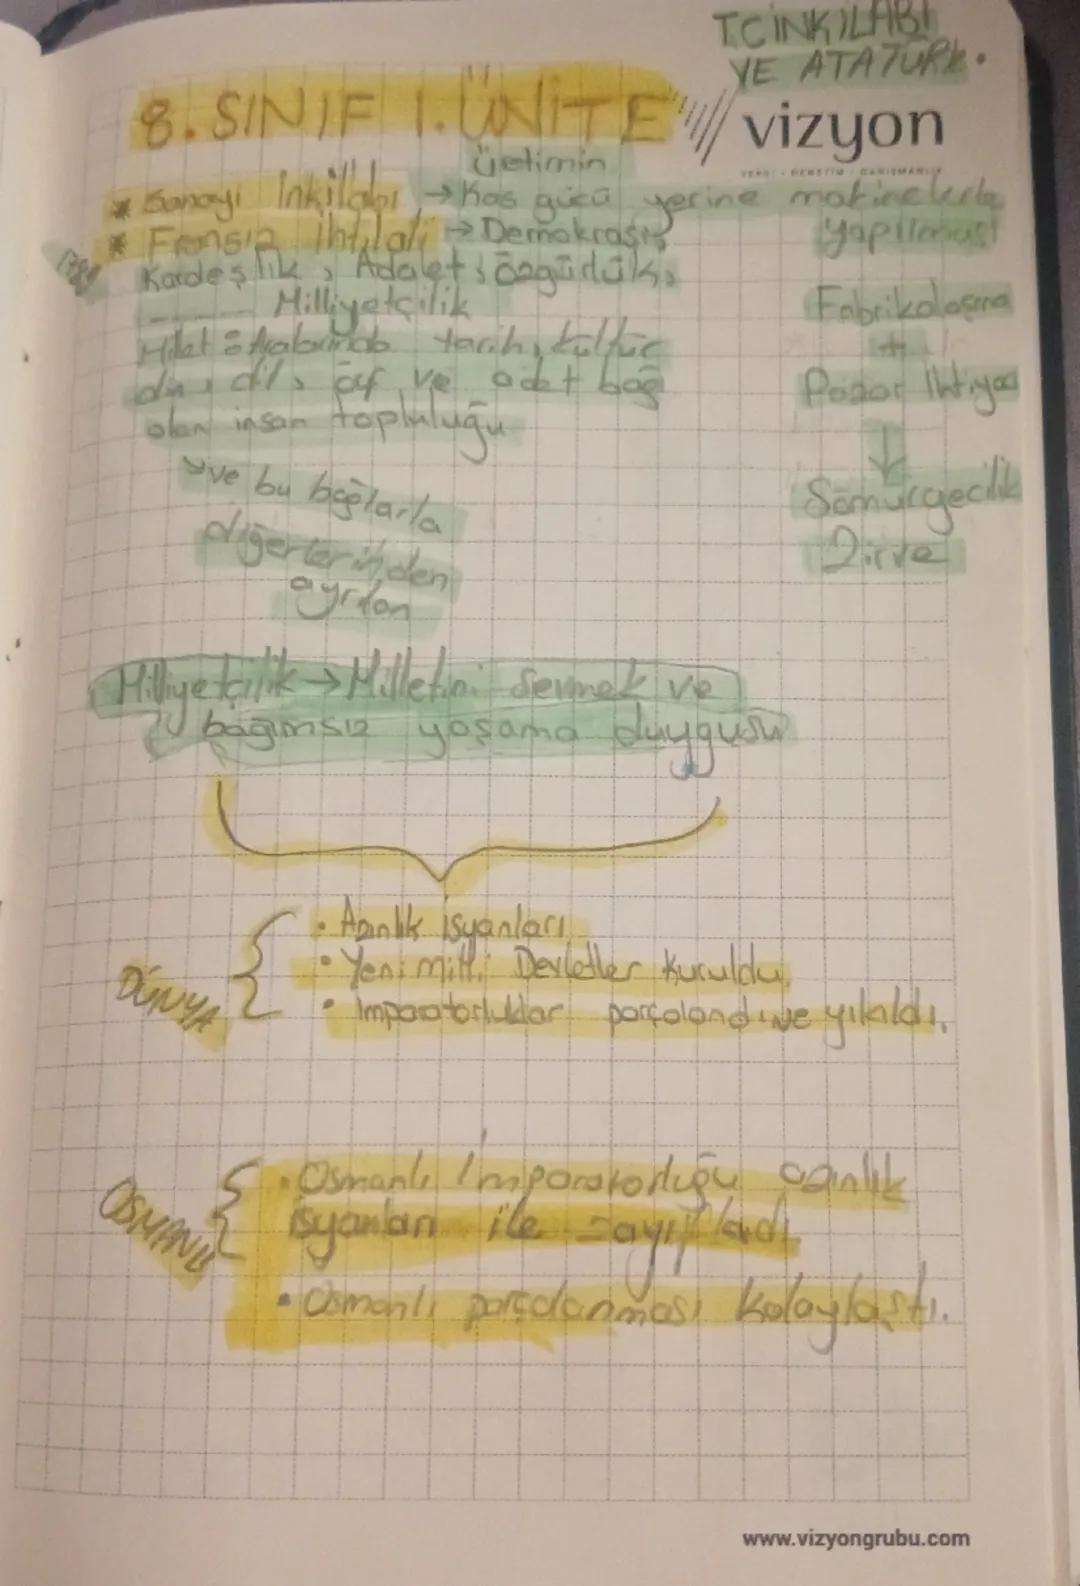 T.C İNKILABI
VE ATATÜRK.
8. SINIF 1. ÜNİTE
vizyon
üretimin
* Sanayi İnkilabı → Kas gücü yerine makinelerle
yapılması
* Fransız İhtilali → Demokrasi,
Kardeşlik, Adalet, özgürlük,
Milliyetçilik
Fabrikalaşma
+
Pazar İhtiyacı
↓
Sömürgecilik
Zirve
Millet = Aralarında tarih, kültür
din, dil, örf ve adet bağı
olan insan topluluğu
→ ve bu bağlarla
diğerlerinden
ayrılan
Milliyetçilik → Milletini sevmek ve
bağımsız yaşama duygusu
DÜNYA
• Azınlık isyanları
• Yeni Milli Devletler Kuruldu.
• İmparatorluklar parçalandı ve yıkıldı.
OSMANLI
• Osmanlı İmparatorluğu azınlık
isyanları ile zayıfladı.
• Osmanlı parçalanması kolaylaştı.
www.vizyongrubu.com